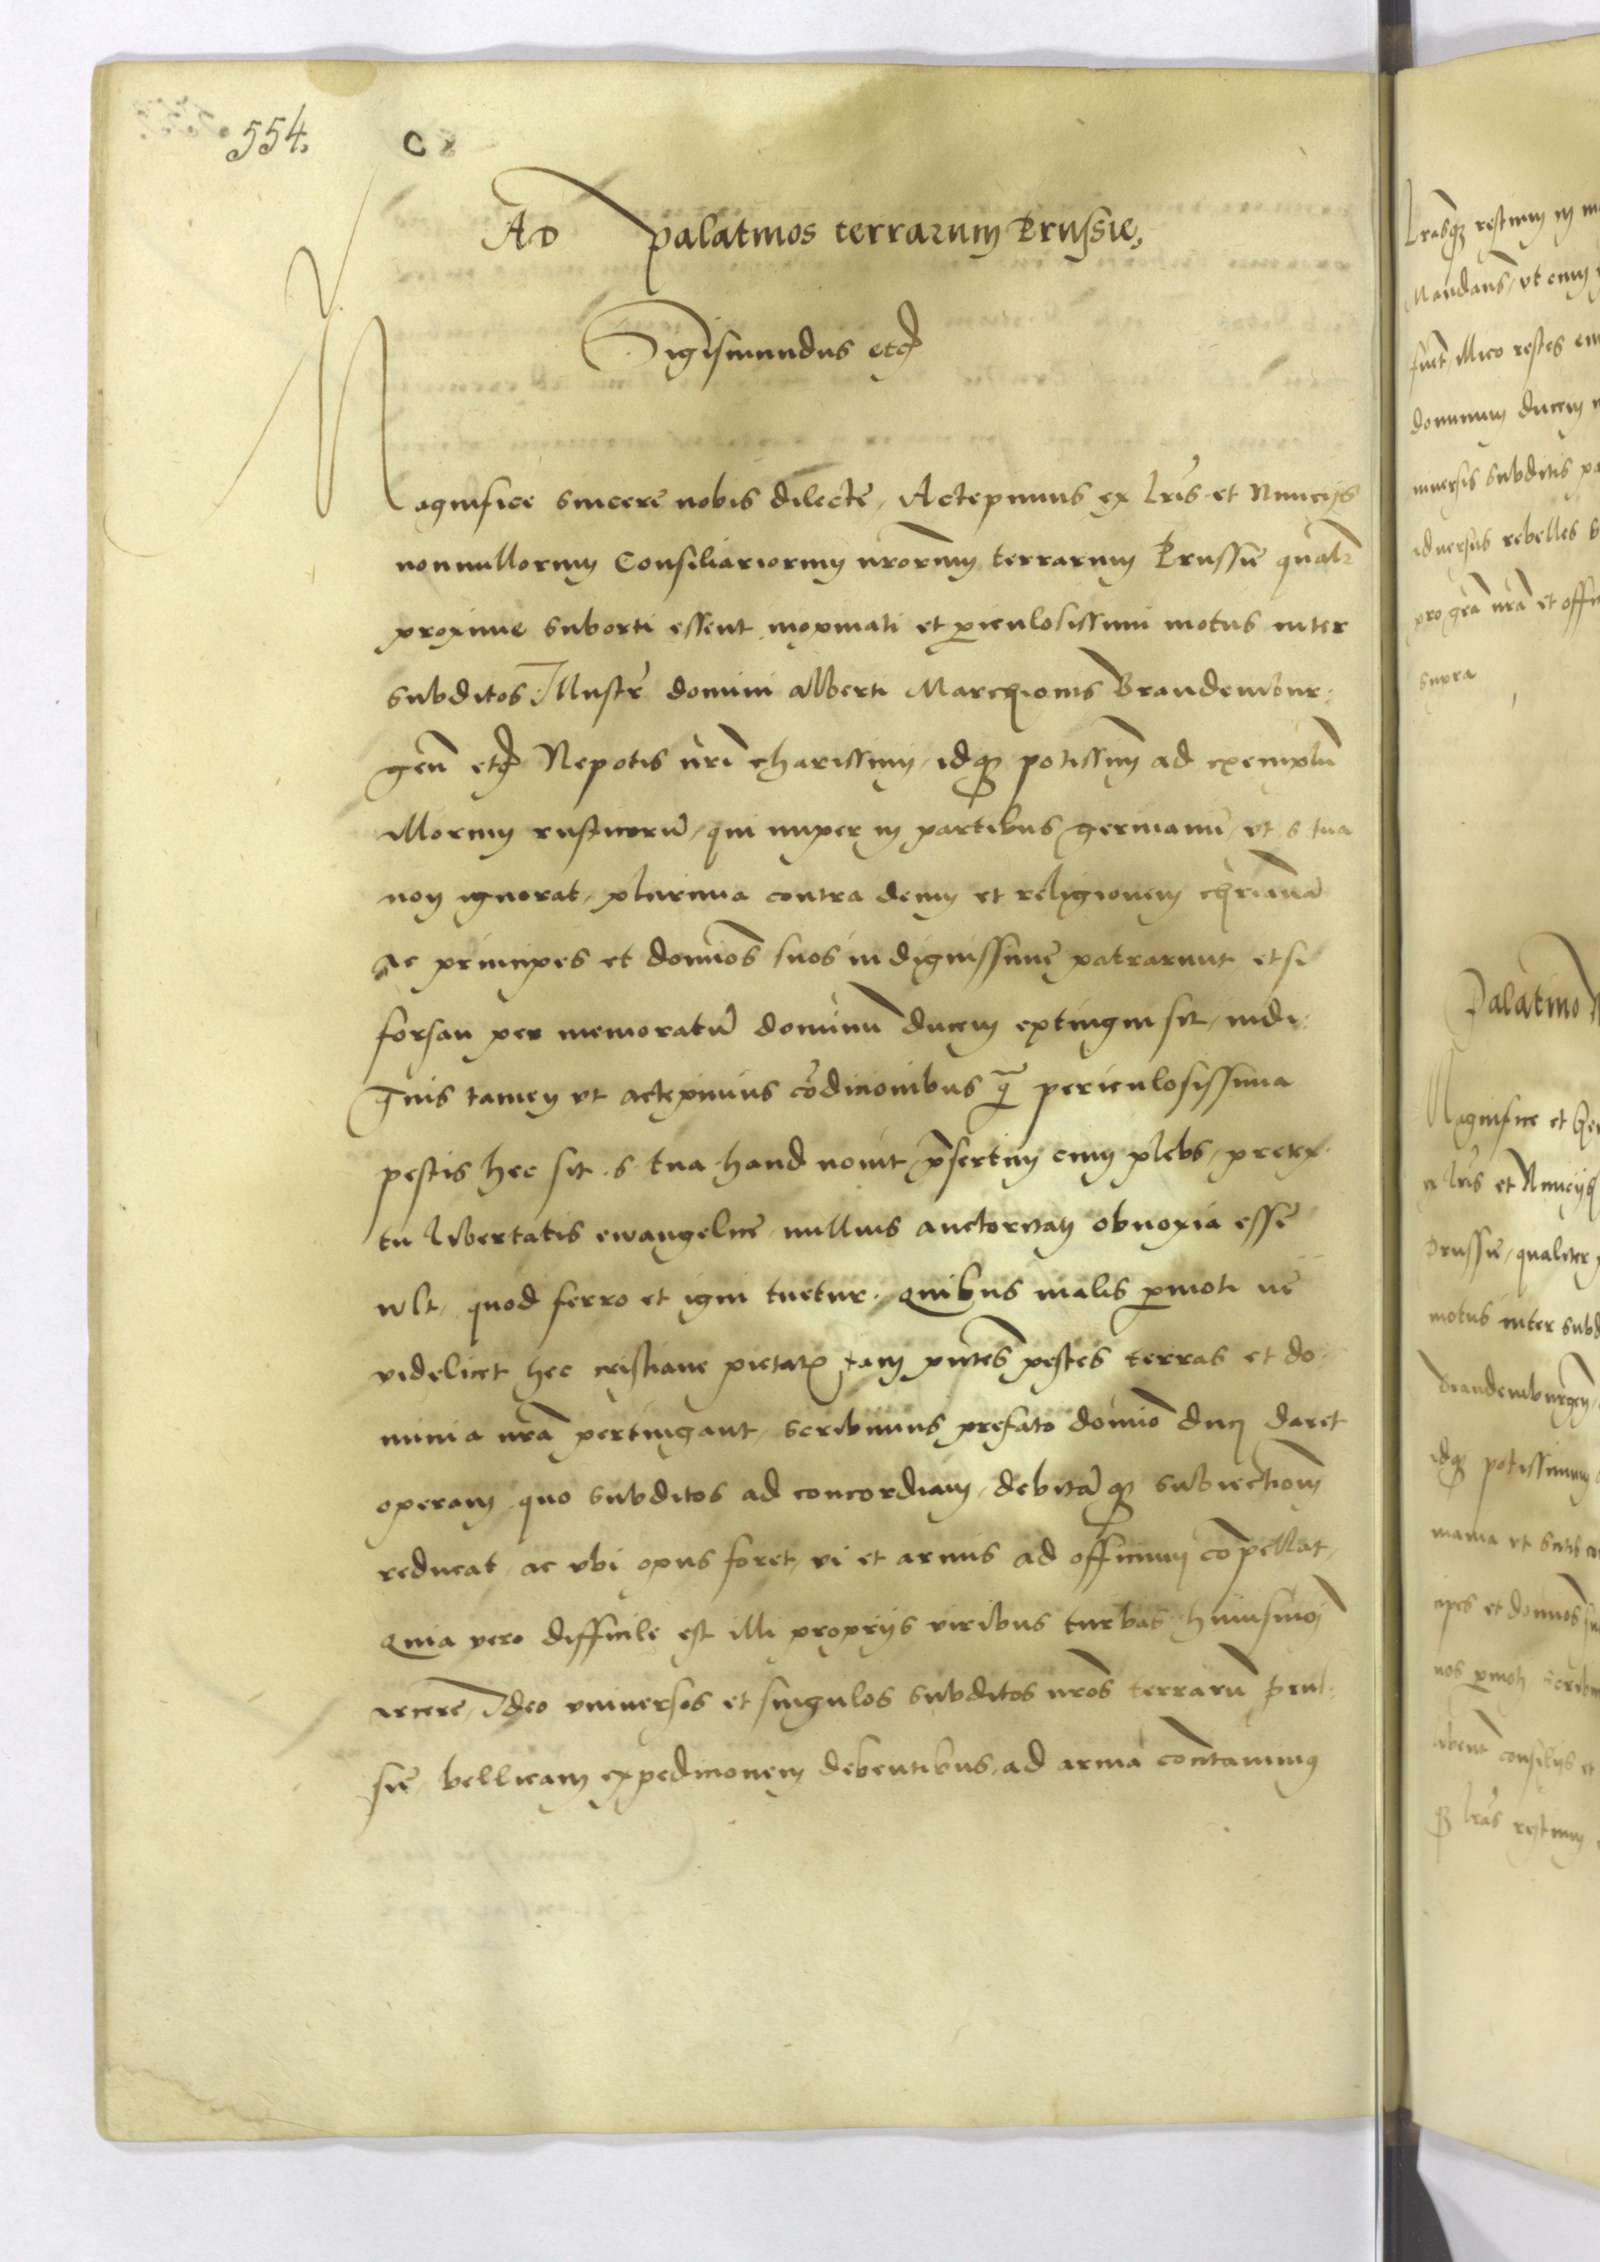 554.
C
Ad palatinos terrarum Prussie,
Sigismundus etc
Magnifice sincere nobis dilecte, Accepimus ex lris et Nuncijs
nonnullorum Consiliariorum nrorum terrarum Prussie qualr
proxime suborti essent inopinati et piculosissimi motus inter
subditos Illustr domini alberti Marchionis Brandenbur:
gen etc Nepotis nri charissimi, idq potissim ad exemplu
illorum rusticoru, qui nuper in partibus germanie, ut s tua
non ignorat, plurima contra deum et religionem chriana
ac principes et dominos suos indignissime patrarunt, etsi
forsan per memoratu dominu ducem extingui sit, indi:
gnis tamen ut accepimus codicionibus q periculosissima
pestis hec sit s tua haud nouit psertim cum plebs, pretex
tu libertatis ewangelice, nullius auctoritati obnoxia esse
wlt, quod ferro et igni tuetur. Quibus malis pmoti ne
videlicet hec cristiane pietatis tam pntes pestes terras et do:
minia nra pertingant, scribimus prefato domino duci daret
operam quo subditos ad concordiam, debitaq subiectiom
reducat, ac ubi opus foret, vi et armis ad officium copellat,
Quia vero difficile est illi proprijs viribus turbas huiusmoi
arcere, Ideo vniuersos et singulos subditos nros terraru Prus:
sie, bellicam expedicionem debentibus, ad arma concitauimus
lrasq restium in
Mandans, vt cum
fuerit, illico restes
dominum ducem
niuersis subditis
aduersus rebelles
pro gra nra et offi
supra
Palatino
Magnifice et
lris et Nuncijs
Prussie, qualiter
motus inter subd
Brandemburgen
idq potissimum
mania vt satis
cipes et dominos
nos pmoti scribi
consilijs et
q lras restium